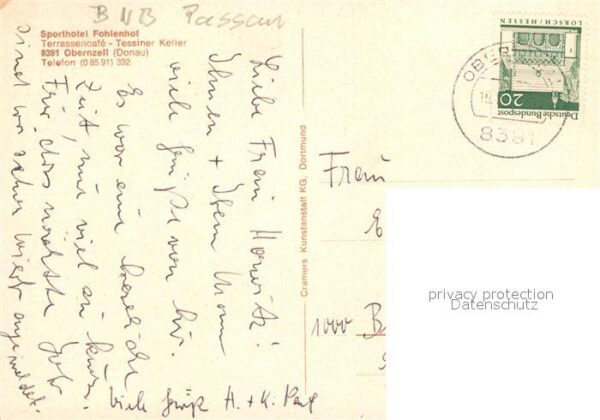 BNB Passau
Sporthotel Fohlenhof
Terrassencafé - Tessiner Keller
8391 Obernzell (Donau)
Telefon (0 85 91) 332
Liebe Frau Horwitz!
Ihnen + Ihrem Mann
viele Grüße von hier.
Es war eine herrliche
Zeit, nur viel zu kurz.
Für das nächste Jahr
sind wir schon wieder angemeldet.
Viele Grüße H. + K.
Cramers Kunstanstalt KG, Dortmund
LORSCH / HESSEN
20
Deutsche Bundespost
8391
Frau
1000 B
privacy protection
Datenschutz